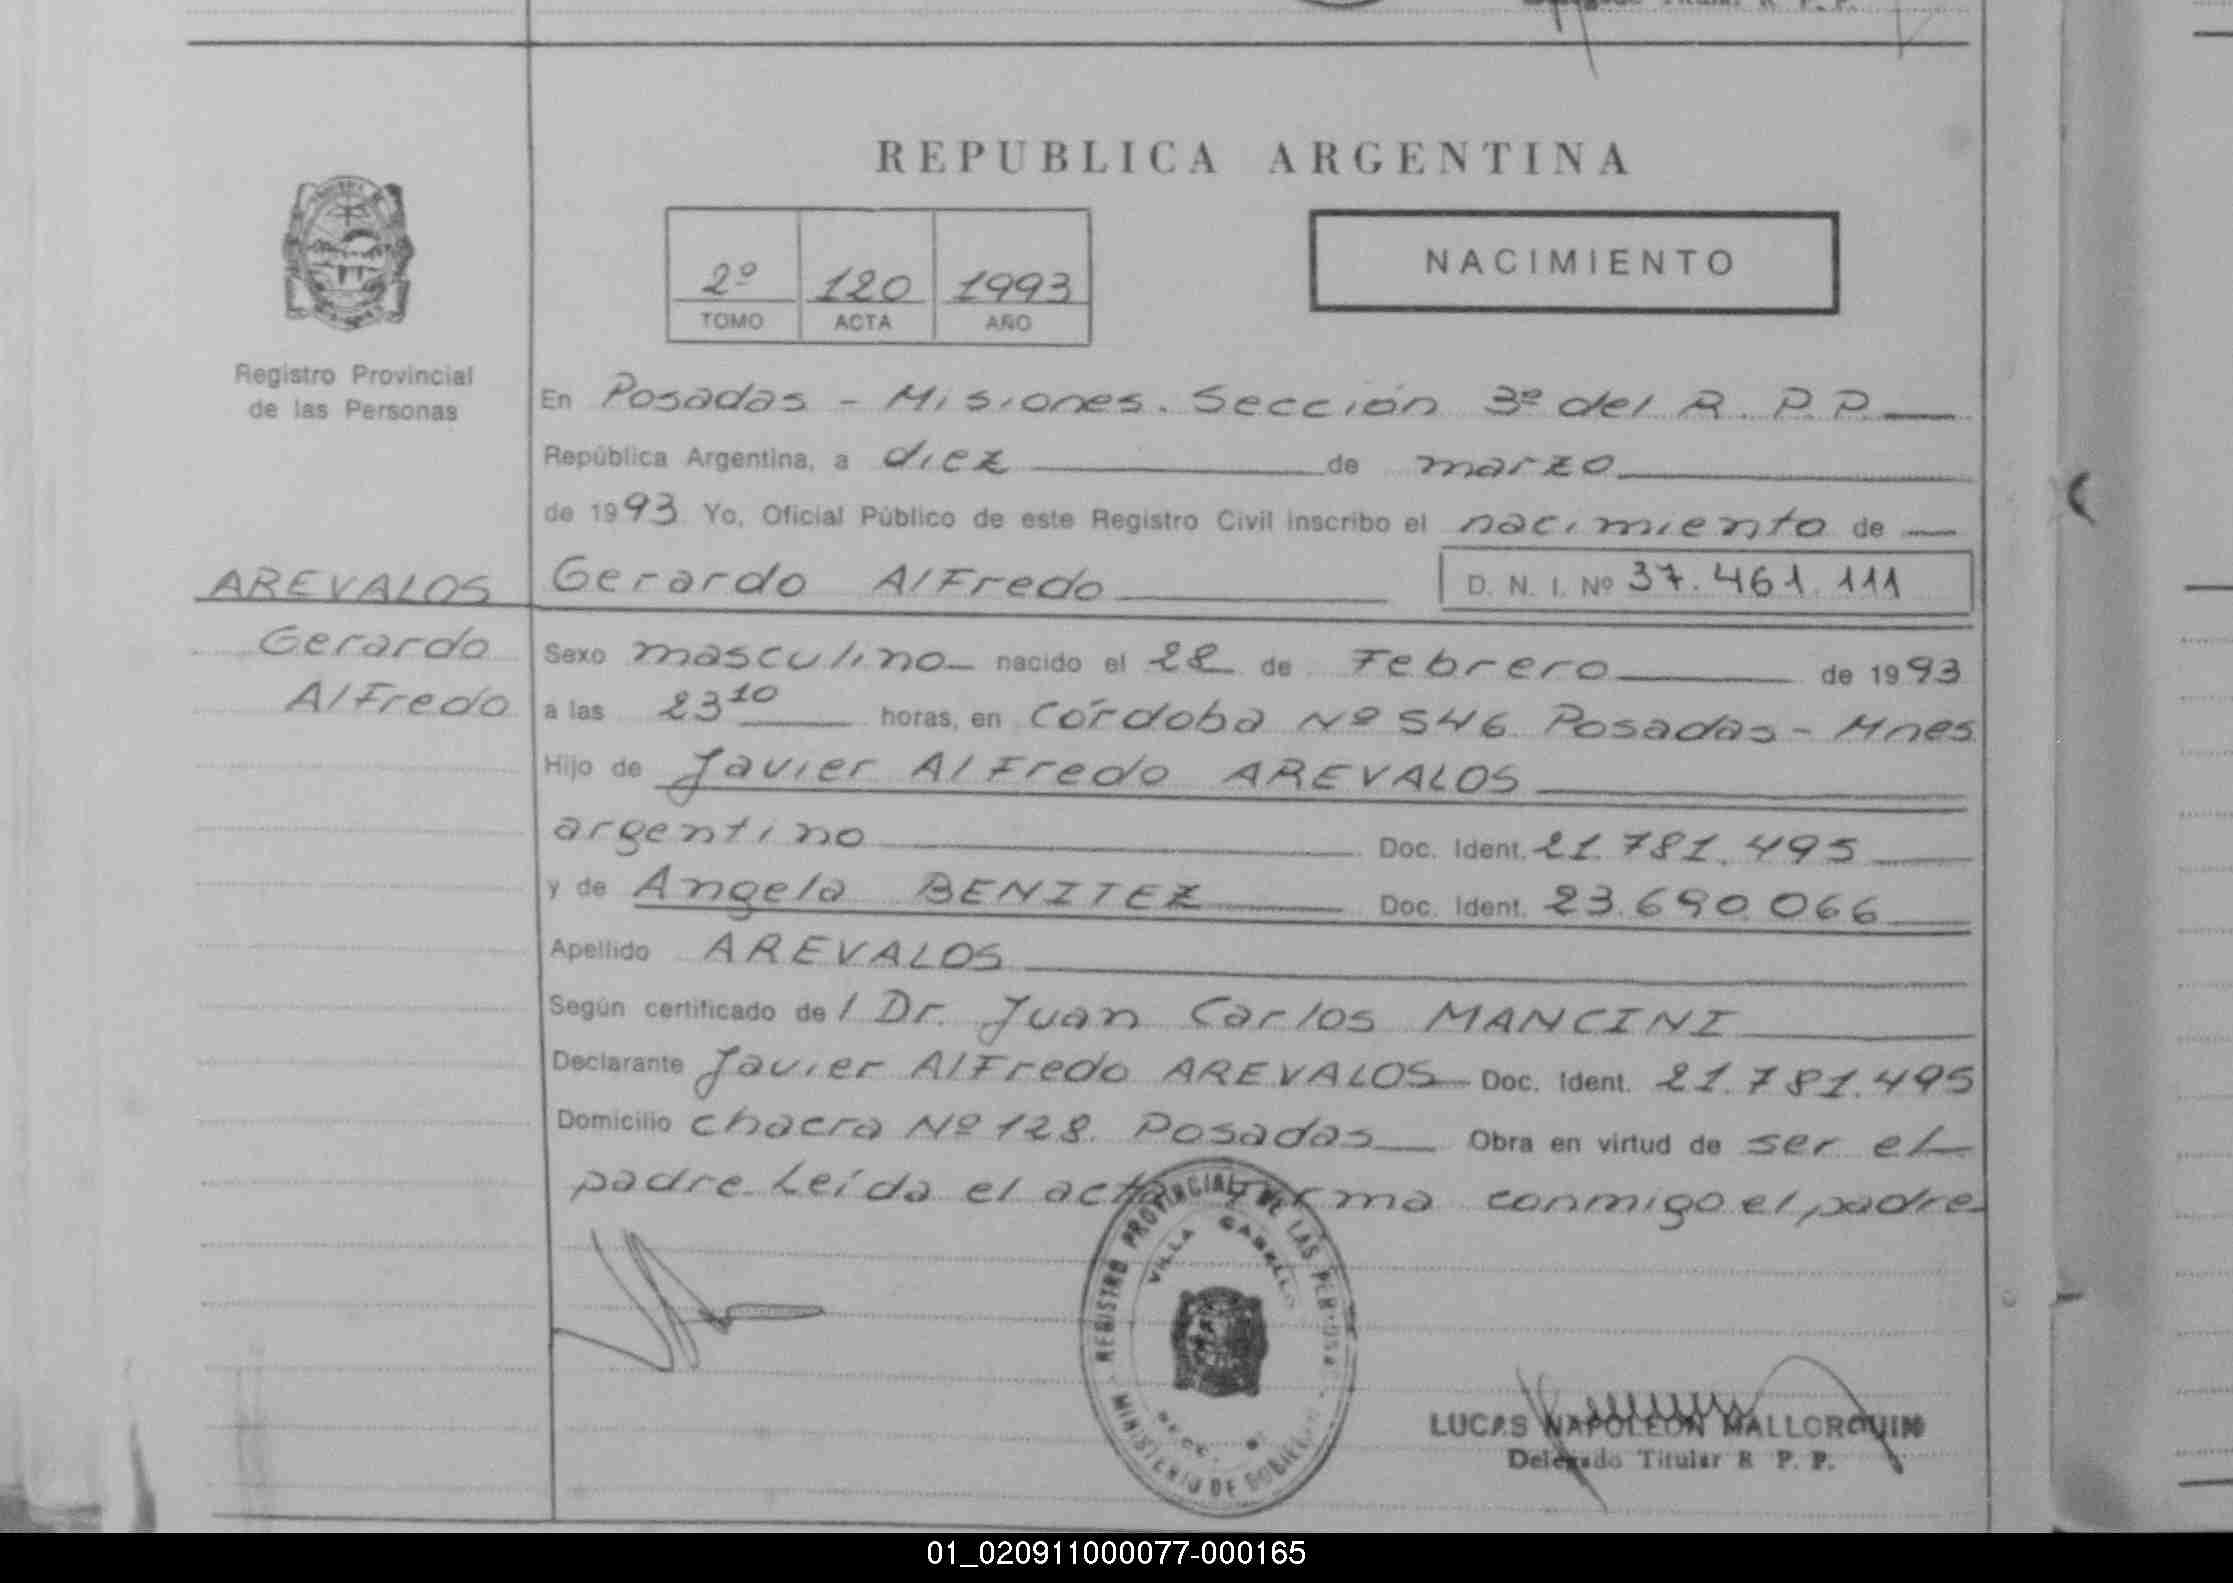 REPUBLICA ARGENTINA
NACIMIENTO
2º 120 1993
TOMO ACTA AÑO
Registro Provincial
de las Personas
En Posadas - Misiones. Sección 3º del R. P. P.
República Argentina, a diez de marzo
de 1993 Yo, Oficial Público de este Registro Civil inscribo el nacimiento de
AREVALOS
Gerardo
Alfredo
Gerardo Alfredo D. N. I. Nº 37.461.111
Sexo masculino nacido el 22 de Febrero de 1993
a las 23 10 horas, en Córdoba Nº 546 Posadas - Mnes
Hijo de Javier Alfredo AREVALOS
argentino Doc. Ident. 21.781.495
y de Angela BENITEZ Doc. Ident. 23.690.066
Apellido AREVALOS
Según certificado de l Dr. Juan Carlos MANCINI
Declarante Javier Alfredo AREVALOS Doc. Ident. 21.781.495
Domicilio chacra Nº 128. Posadas Obra en virtud de ser el
padre. Leída el acta firma conmigo el padre
REGISTRO PROVINCIAL DE LAS PERSONAS
VILLA CABELLO
MINISTERIO DE GOBIERNO
LUCAS NAPOLEON MALLORQUIN
Delegado Titular R P. P.
01_020911000077-000165